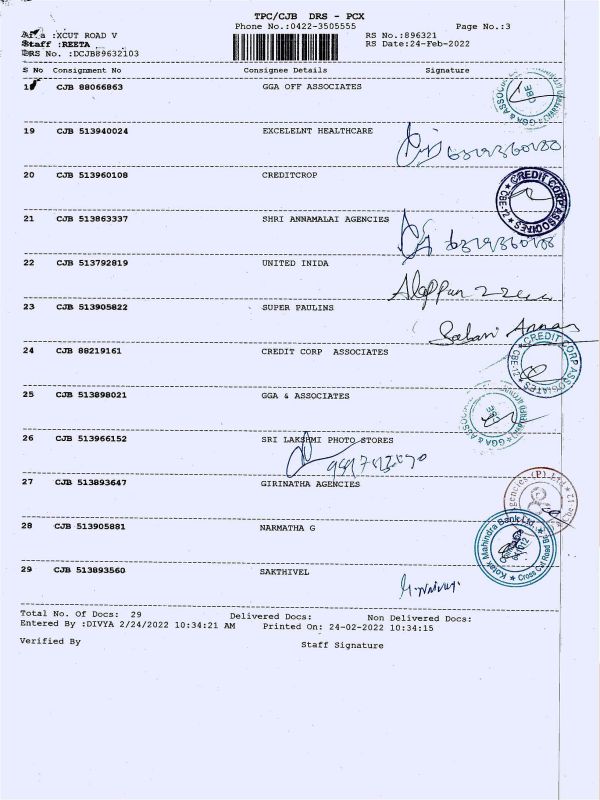 TPC/CJB DRS - PCX
Phone No.:0422-3505555 Page No.:3
Area :XCUT ROAD V RS No.:896321
Staff :REETA RS Date:24-Feb-2022
DRS No. :DCJB89632103
S No Consignment No Consignee Details Signature
18 CJB 88066863 GGA OFF ASSOCIATES
CBE
19 CJB 513940024 EXCELELNT HEALTHCARE
20 CJB 513960108 CREDITCROP
CREDIT CORP ASSOCIATES ★ CBE-12 ★
21 CJB 513863337 SHRI ANNAMALAI AGENCIES
22 CJB 513792819 UNITED INIDA
23 CJB 513905822 SUPER PAULINS
24 CJB 88219161 CREDIT CORP ASSOCIATES
CREDIT CORP ASSOCIATES ★ CBE-12 ★
25 CJB 513898021 GGA & ASSOCIATES
★ GGA & ASSOC
26 CJB 513966152 SRI LAKSHMI PHOTO STORES
27 CJB 513893647 GIRINATHA AGENCIES
gencies (P) Ltd ★
28 CJB 513905881 NARMATHA G
Kotak Mahindra Bank Ltd. ★ Cross Cut Road Br.
29 CJB 513893560 SAKTHIVEL
Total No. Of Docs: 29 Delivered Docs: Non Delivered Docs:
Entered By :DIVYA 2/24/2022 10:34:21 AM Printed On: 24-02-2022 10:34:15
Verified By Staff Signature